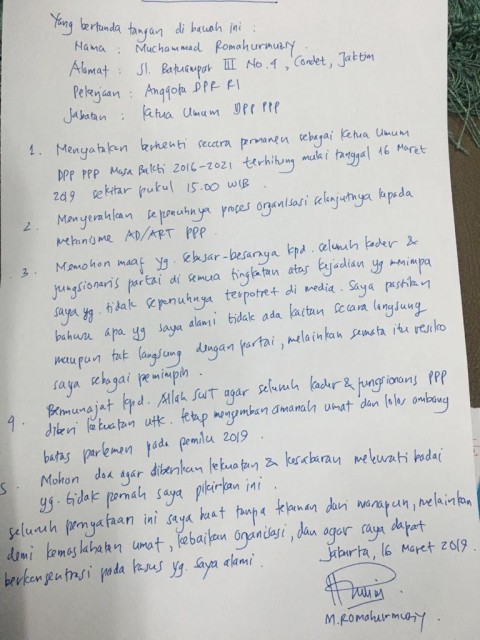 Yang bertanda tangan di bawah ini :
Nama : Muchammad Romahurmuziy
Alamat : Jl. Batuampar III No. 4, Condet, Jaktim
Pekerjaan : Anggota DPR RI
Jabatan : Ketua Umum DPP PPP
1. Menyatakan berhenti secara permanen sebagai Ketua Umum
DPP PPP Masa Bakti 2016-2021 terhitung mulai tanggal 16 Maret
2019 sekitar pukul 15.00 WIB.
2. Menyerahkan sepenuhnya proses organisasi selanjutnya kepada
mekanisme AD/ART PPP.
3. Memohon maaf yg. sebesar-besarnya kpd. seluruh kader &
fungsionaris partai di semua tingkatan atas kejadian yg menimpa
saya yg. tidak sepenuhnya terpotret di media. Saya pastikan
bahwa apa yg saya alami tidak ada kaitan secara langsung
maupun tak langsung dengan partai, melainkan semata itu resiko
saya sebagai pemimpin.
4. Bermunajat kpd. Allah SWT agar seluruh kader & fungsionaris PPP
diberi kekuatan utk. tetap mengemban amanah umat dan lolos ambang
batas parlemen pada pemilu 2019.
5. Mohon doa agar diberikan kekuatan & kesabaran melewati badai
yg. tidak pernah saya pikirkan ini.
Seluruh pernyataan ini saya buat tanpa tekanan dari manapun, melainkan
demi kemaslahatan umat, kebaikan organisasi, dan agar saya dapat
berkonsentrasi pada kasus yg. saya alami.
Jakarta, 16 Maret 2019.
M. Romahurmuziy